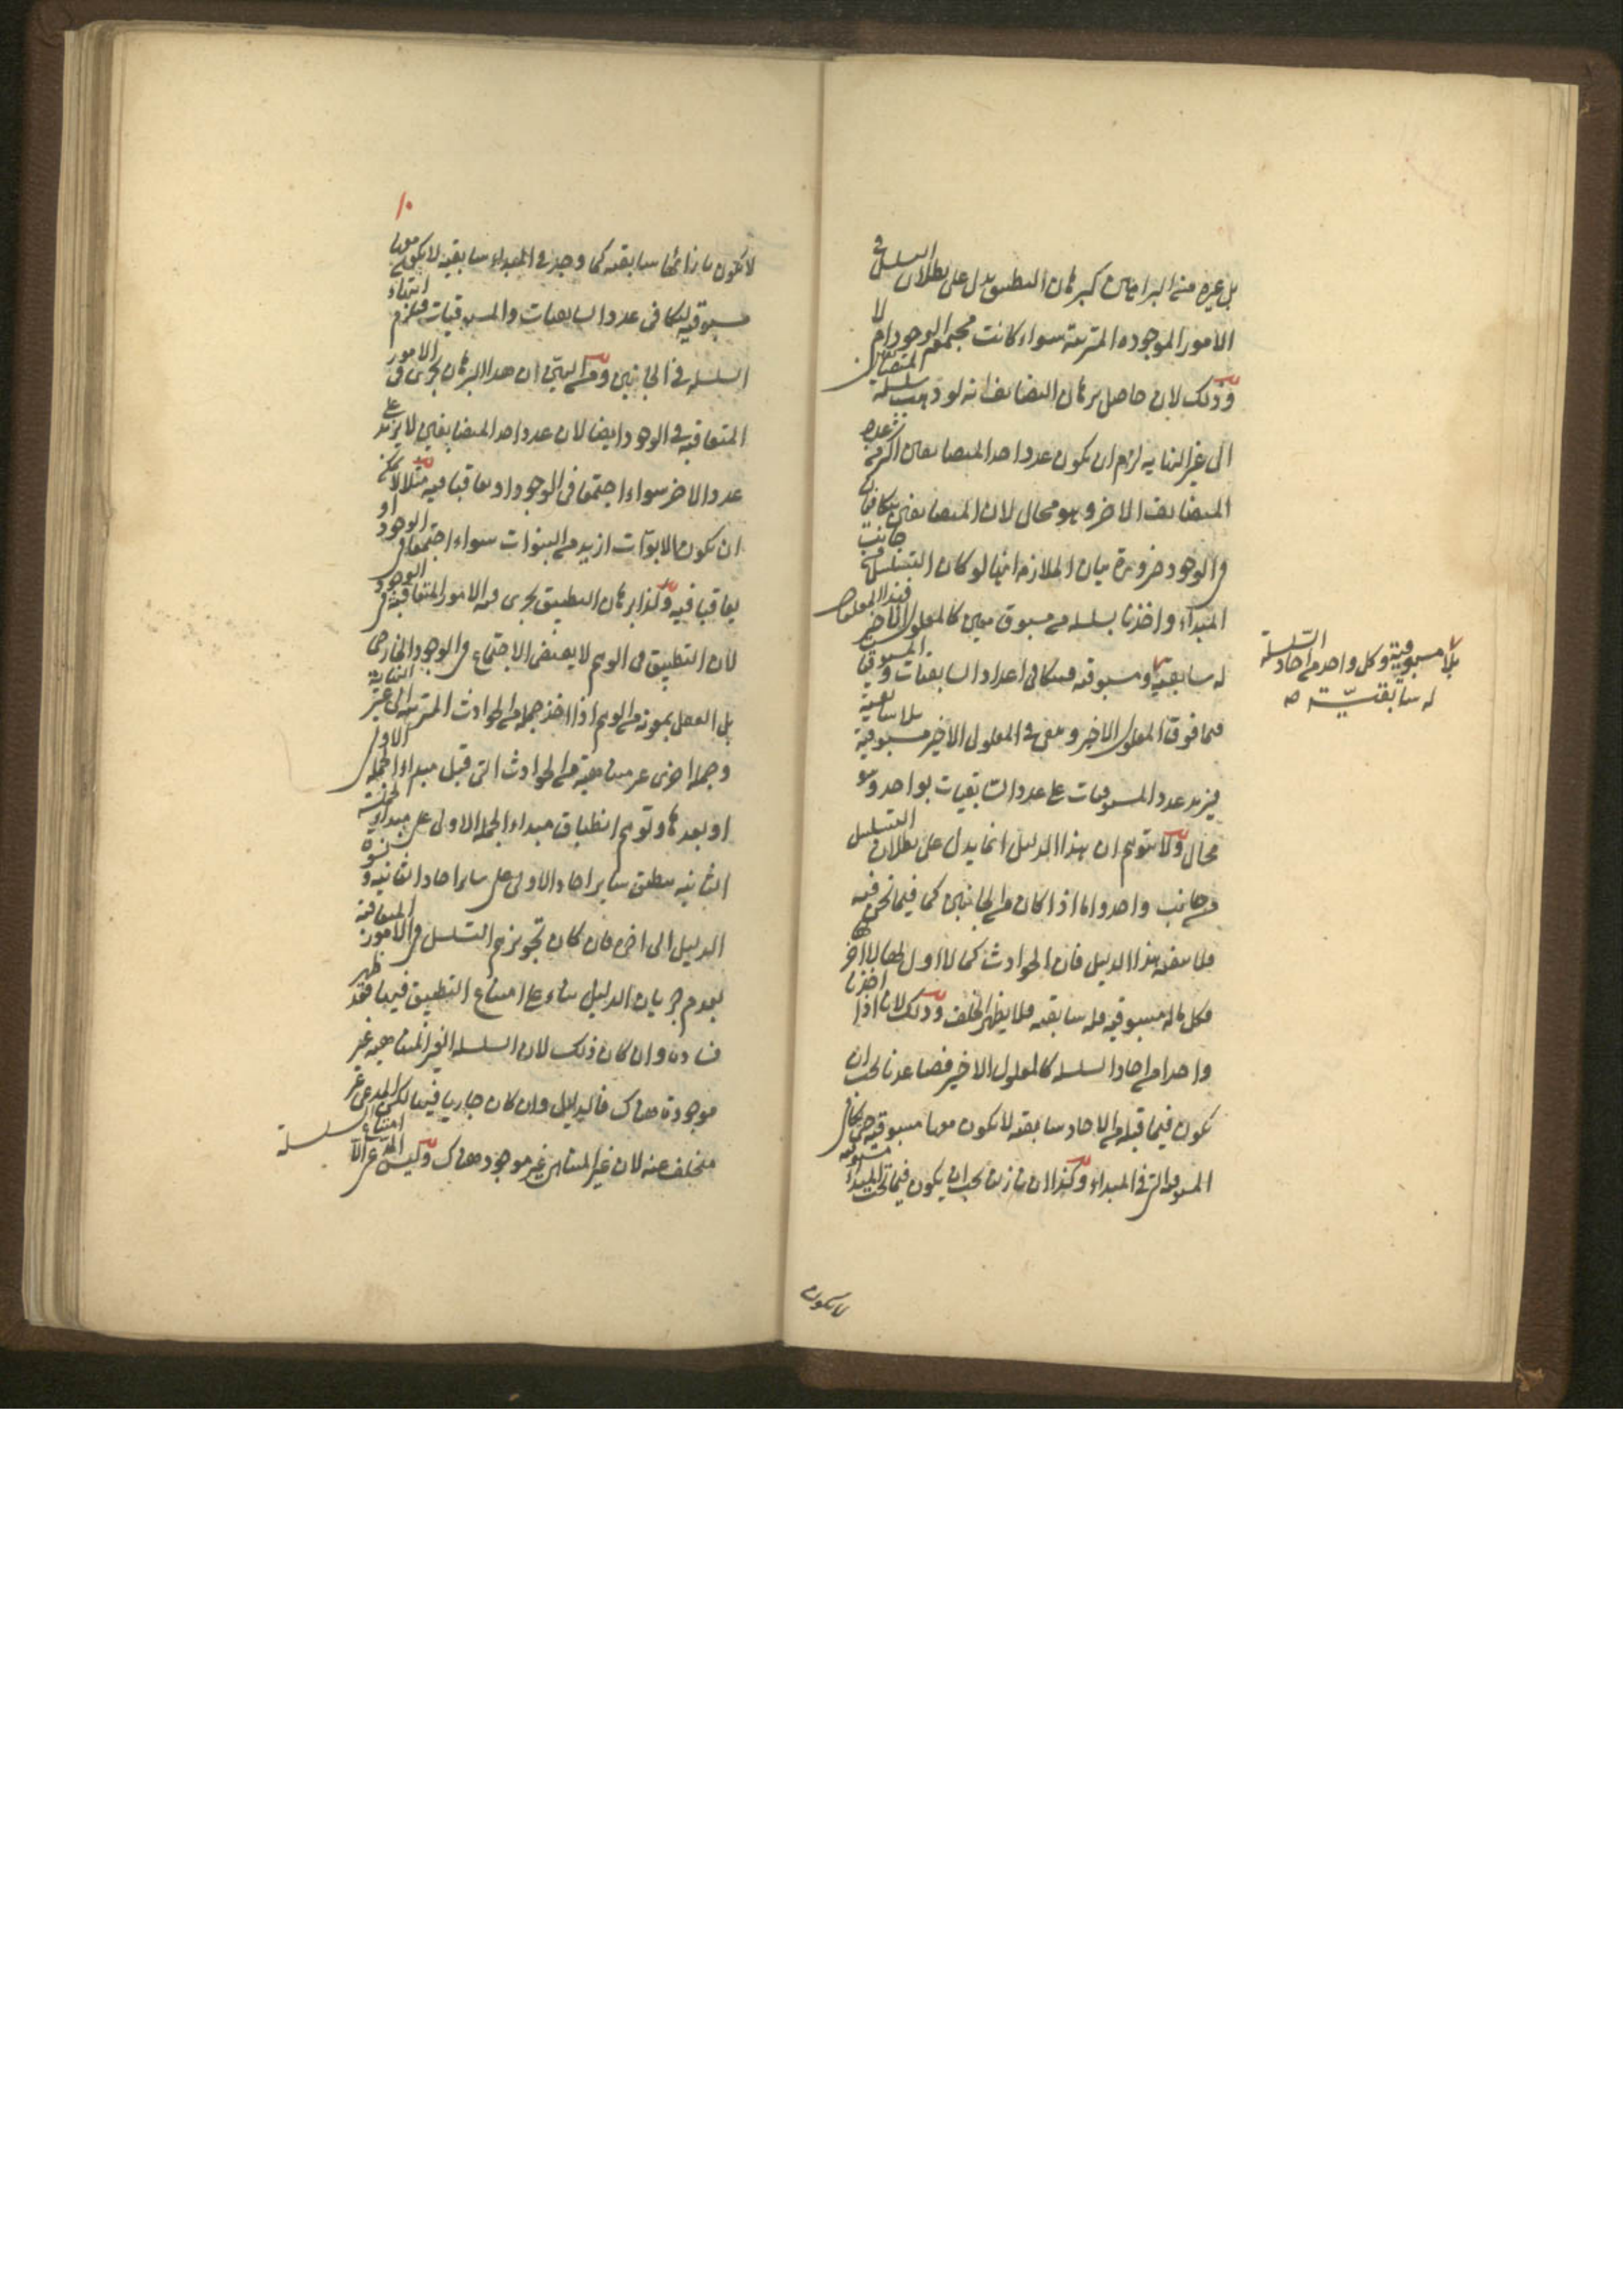 بل غيره من البراهين كبرهان التطبيق يدل على بطلان التسلسل في
الامور الموجودة المترتبة سواء كانت مجتمعة الوجود ام لا
وذلك لان حاصل برهان التضايف انه لو ذهب سلسلة المتضايفين
الى غير النهاية لزم ان يكون عدد احد المتضايفين اكثر من عدد
المتضايف الاخر وهو محال لان المتضايفين متكافيان
في الوجود ضرورة بيان الملازمة انها لو كان التسلسل من جانب
المبداء واخذنا سلسلة من مسبوق معين كالمعلول الاخير فهذا المعلول
له سابقية ومسبوقية فتكافى اعداد السابقيات والمسبوقيات
فيما فوق المعلول الاخير وبقى في المعلول الاخير مسبوقية بلا سابقية
فيزيد عدد المسبوقيات على عدد السابقيات بواحد وهو
محال ولا يتوهم ان هذا الدليل انما يدل على بطلان التسلسل
من جانب واحد واما اذا كان من الجانبين كما فيما نحن فيه
فلا ينفيه هذا الدليل فان الحوادث كما لا اول لها لا اخر لها
فكل ما له مسبوقية فله سابقية فلا يظهر الخلف وذلك لانا اذا اخذنا
واحدا من احاد السلسلة كالمعلول الاخير فصاعدنا يجب ان
يكون فيما قبله من الاحاد سابقية لا يكون معها مسبوقية حتى يكافى
المسبوقية التي في المبداء وكذا ان تنازلنا يجب ان يكون فيما تحت المبداء مسبوقية
لا يكون
بلا مسبوقية وكل واحد من احاد السلسلة
له سابقية صح
١٠
لا يكون بازائها سابقية كما وجد في المبداء سابقية لا يكون معها
مسبوقية ليتكافى عدد السابقيات والمسبوقيات فيلزم انتهاء
السلسلة في الجانبين ومن البين ان هذا البرهان يجرى في الامور
المتعاقبة في الوجود ايضا لان عدد احد المتضايفين لا يزيد على
عدد الاخر سواء اجتمعا في الوجود او تعاقبا فيه مثلا لا يمكن
ان يكون الابوات ازيد من البنوات سواء اجتمعا في الوجود او
تعاقبا فيه وكذا برهان التطبيق يجرى في الامور المتعاقبة في الوجود
لان التطبيق في الوهم لا يقتضى الاجتماع في الوجود الخارجى
بل العقل بمعونة من الوهم اذا اخذ جملة من الحوادث المترتبة الى غير النهاية
وجملة اخرى غير متناهية من الحوادث التي قبل مبداء الجملة الاولى
او بعدها وتوهم انطباق مبداء الجملة الاولى على مبداء الجملة
الثانية ينطبق ساير احاد الاولى على ساير احاد الثانية و
الدليل الى اخره فان كان تجويزهم التسلسل في الامور المتعاقبة
لعدم جريان الدليل بناء على امتناع التطبيق فيها فقد ظهر
فساده وان كان ذلك لان السلسلة الغير المتناهية غير
موجودة هناك فالدليل وان كان جاريا فيها لكن المدعى غير
متخلف عنه لان غير المتناهى غير موجود هناك وليس المدعى الا امتناع سلسلة